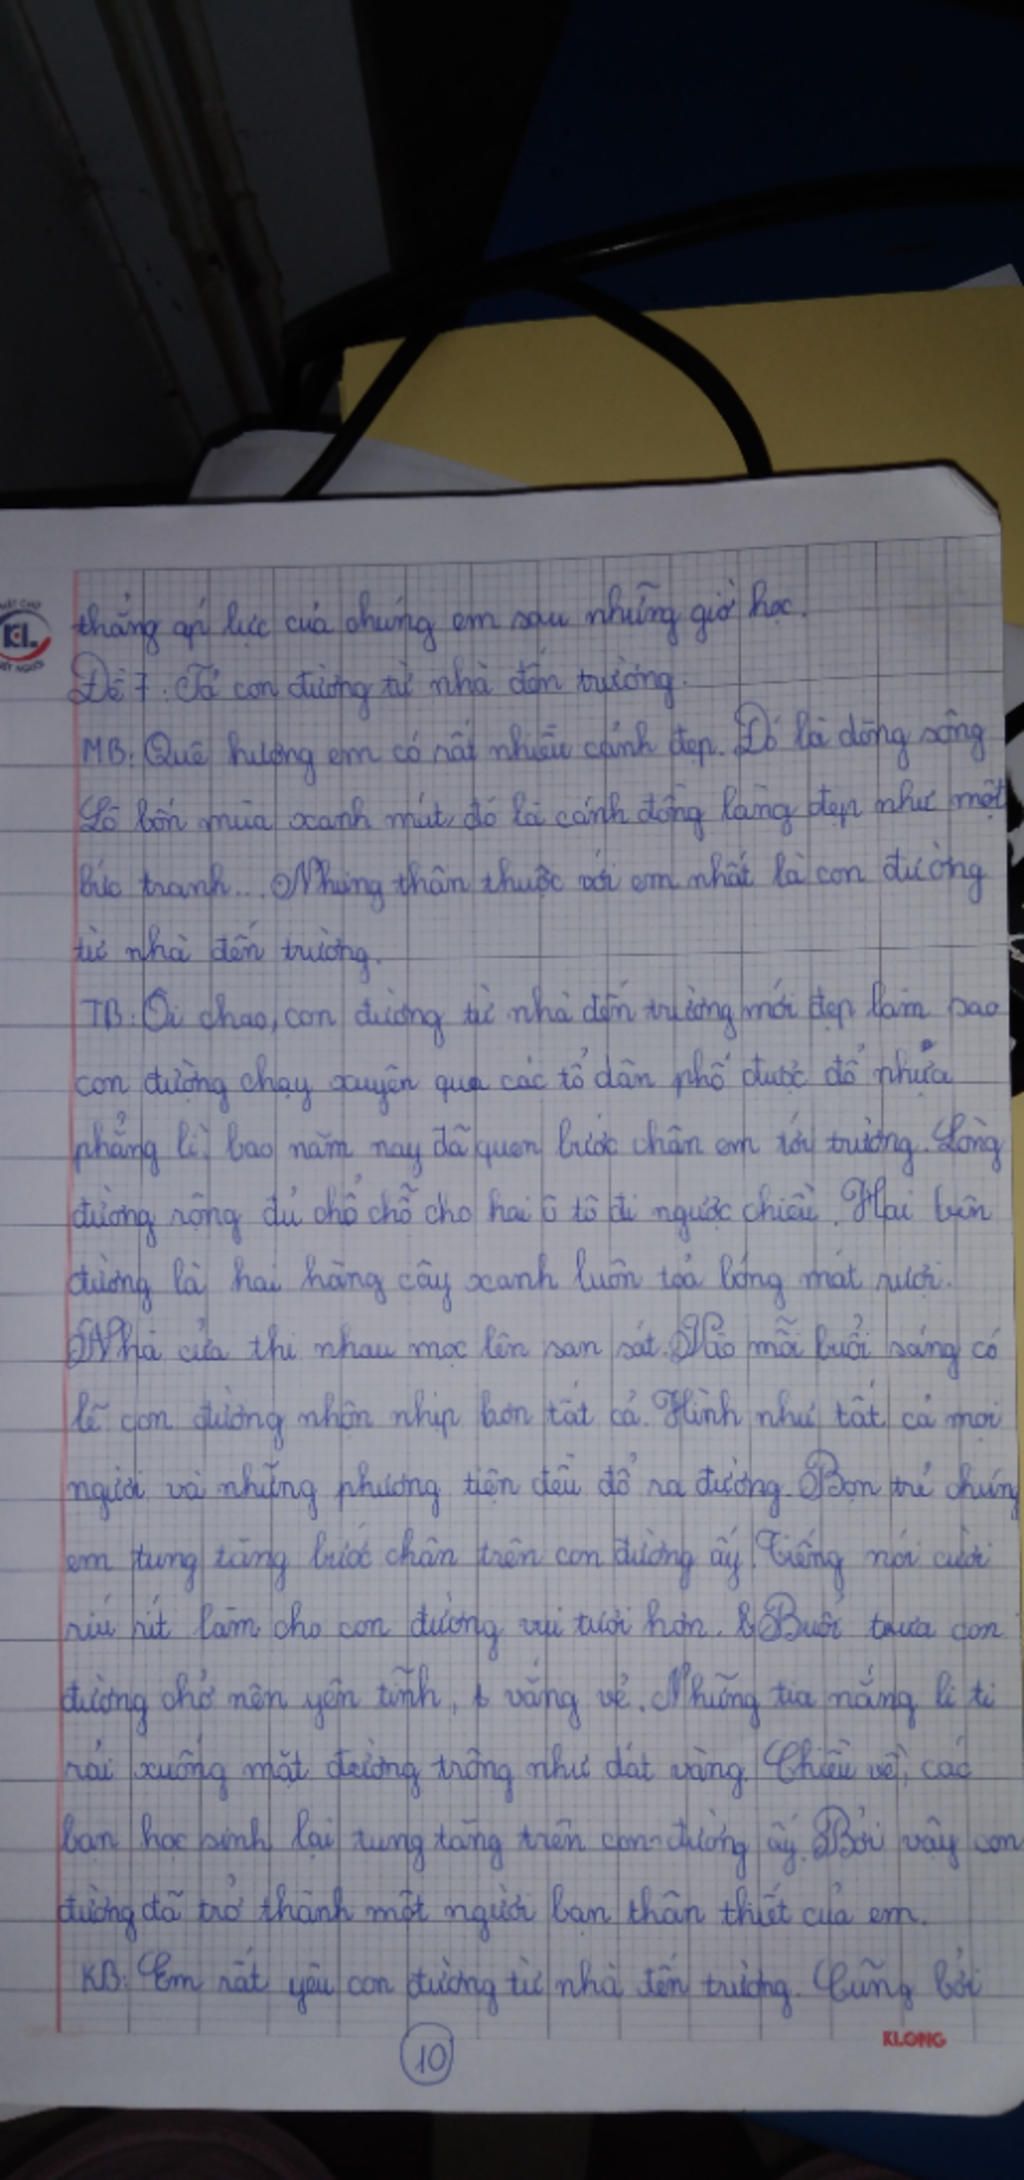 thẳng áp lực của chúng em sau những giờ học.
Đề 7: Tả con đường từ nhà đến trường.
MB: Quê hương em có rất nhiều cảnh đẹp. Đó là dòng sông
Lô bốn mùa xanh mát, đó là cánh đồng làng đẹp như một
bức tranh... Nhưng thân thuộc với em nhất là con đường
từ nhà đến trường.
TB: Ôi chao, con đường từ nhà đến trường mới đẹp làm sao
con đường chạy xuyên qua các tổ dân phố được đổ nhựa
phẳng lì, bao năm nay đã quen bước chân em tới trường. Lòng
đường rộng đủ chổ chỗ cho hai ô tô đi ngược chiều. Hai bên
đường là hai hàng cây xanh luôn toả bóng mát rượi.
Nhà cửa thi nhau mọc lên san sát. Vào mỗi buổi sáng có
lẽ con đường nhộn nhịp hơn tất cả. Hình như tất cả mọi
người và những phương tiện đều đổ ra đường. Bọn trẻ chúng
em tung tăng bước chân trên con đường ấy. Tiếng nói cười
ríu rít làm cho con đường vui tươi hơn. Buổi trưa con
đường chở nên yên tĩnh, vắng vẻ. Những tia nắng li ti
rải xuống mặt đường trông như dát vàng. Chiều về, các
bạn học sinh lại tung tăng trên con đường ấy. Bởi vậy con
đường đã trở thành một người bạn thân thiết của em.
KB: Em rất yêu con đường từ nhà đến trường. Cũng bởi
KLONG
10